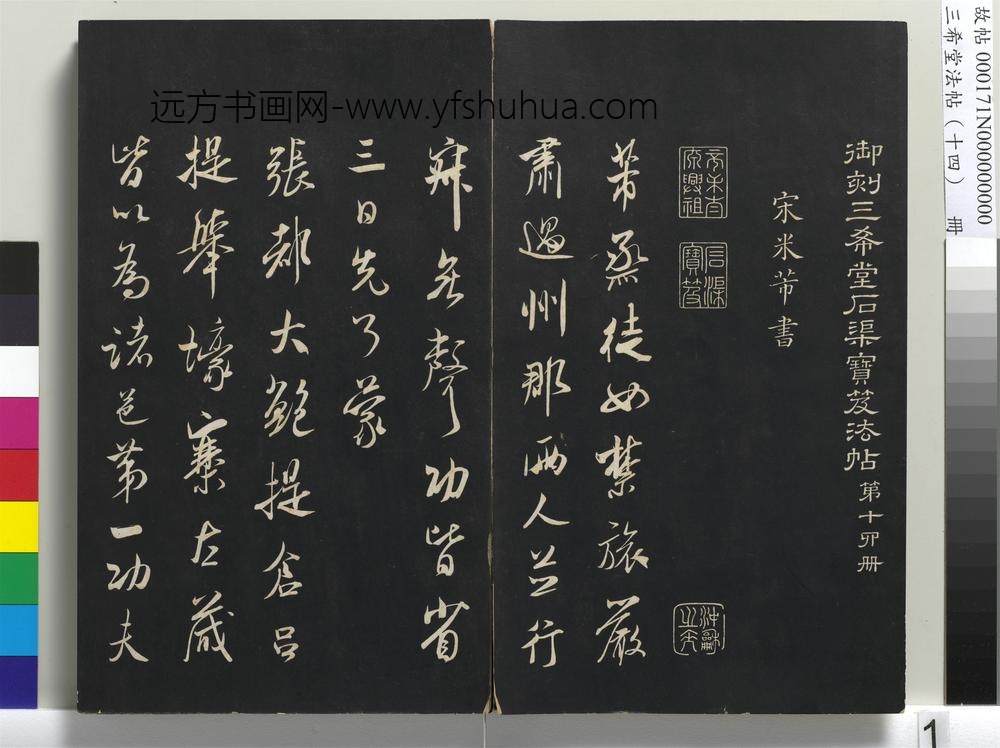 故帖 000171N000000000
三希堂法帖（十四） 冊
远方书画网-www.yfshuhua.com
御刻三希堂石渠寶笈法帖 第十四册
宋米芾書
芾烝徒如禁旅嚴
肅過州郡兩人並行
寂無聲功皆省
三日先了蒙
張都大鮑提倉呂
提舉壕寨左藏
皆以為諸邑第一功夫
石渠
寶笈
1